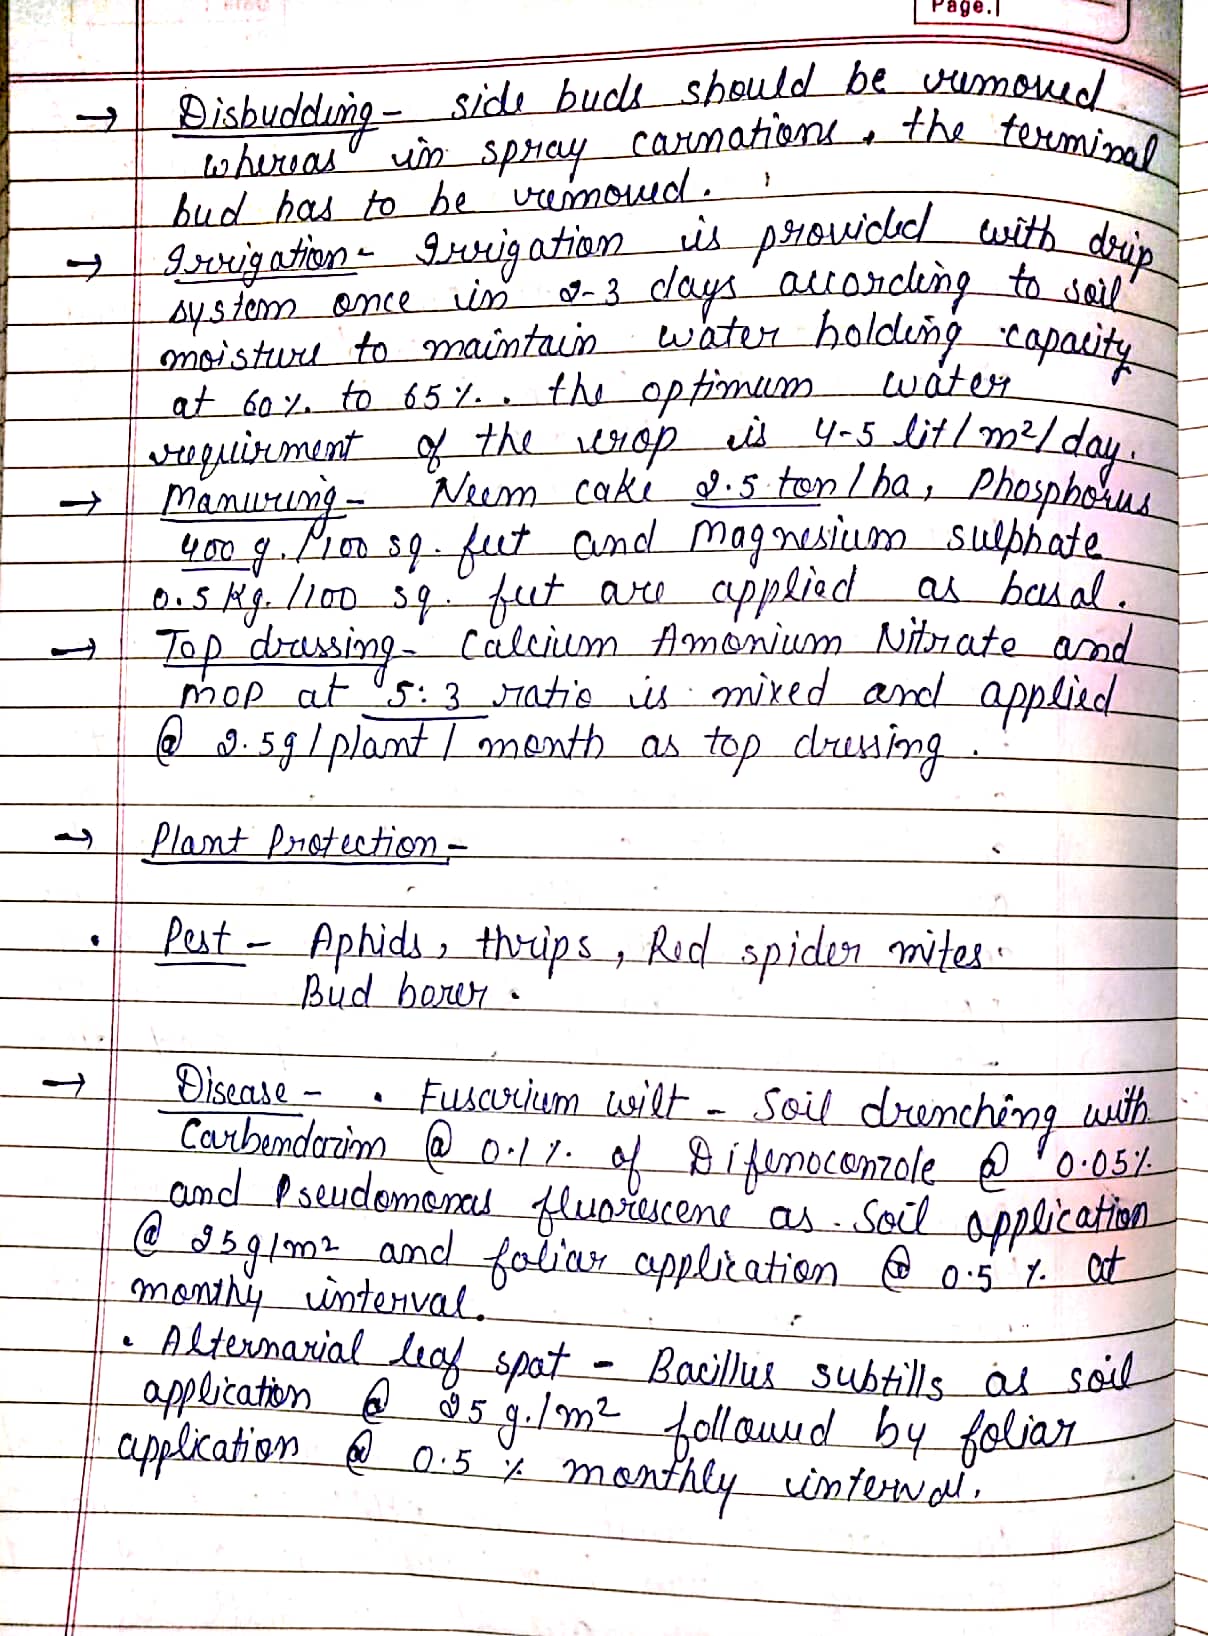 Page.
→ Disbudding - side buds should be removed
whereas in spray carnations, the terminal
bud has to be removed.
→ Irrigation - Irrigation is provided with drip
system once in 2-3 days according to soil
moisture to maintain water holding capacity
at 60%. to 65%.. the optimum water
requirment of the crop is 4-5 lit/m2/day.
→ Manuring - Neem cake 2.5 ton/ha, Phosphorus
400 g./100 sq. feet and Magnesium sulphate
0.5 Kg./100 sq. feet are applied as basal.
→ Top dressing - Calcium Amonium Nitrate and
MOP at 5:3 ratio is mixed and applied
@ 2.5g/plant/month as top dressing.
→ Plant Protection -
• Pest - Aphids, thrips, Red spider mites.
Bud borer.
→ Disease - • Fusarium wilt - Soil drenching with
Carbendazim @ 0.1%. of Difenoconzole @ 0.05%.
and Pseudomonas fluorescene as soil application
@ 25g/m2 and foliar application @ 0.5 %. at
monthy interval.
• Alternarial leaf spot - Bacillus subtills as soil
application @ 25 g./m2 followed by foliar
application @ 0.5 % monthly interval.